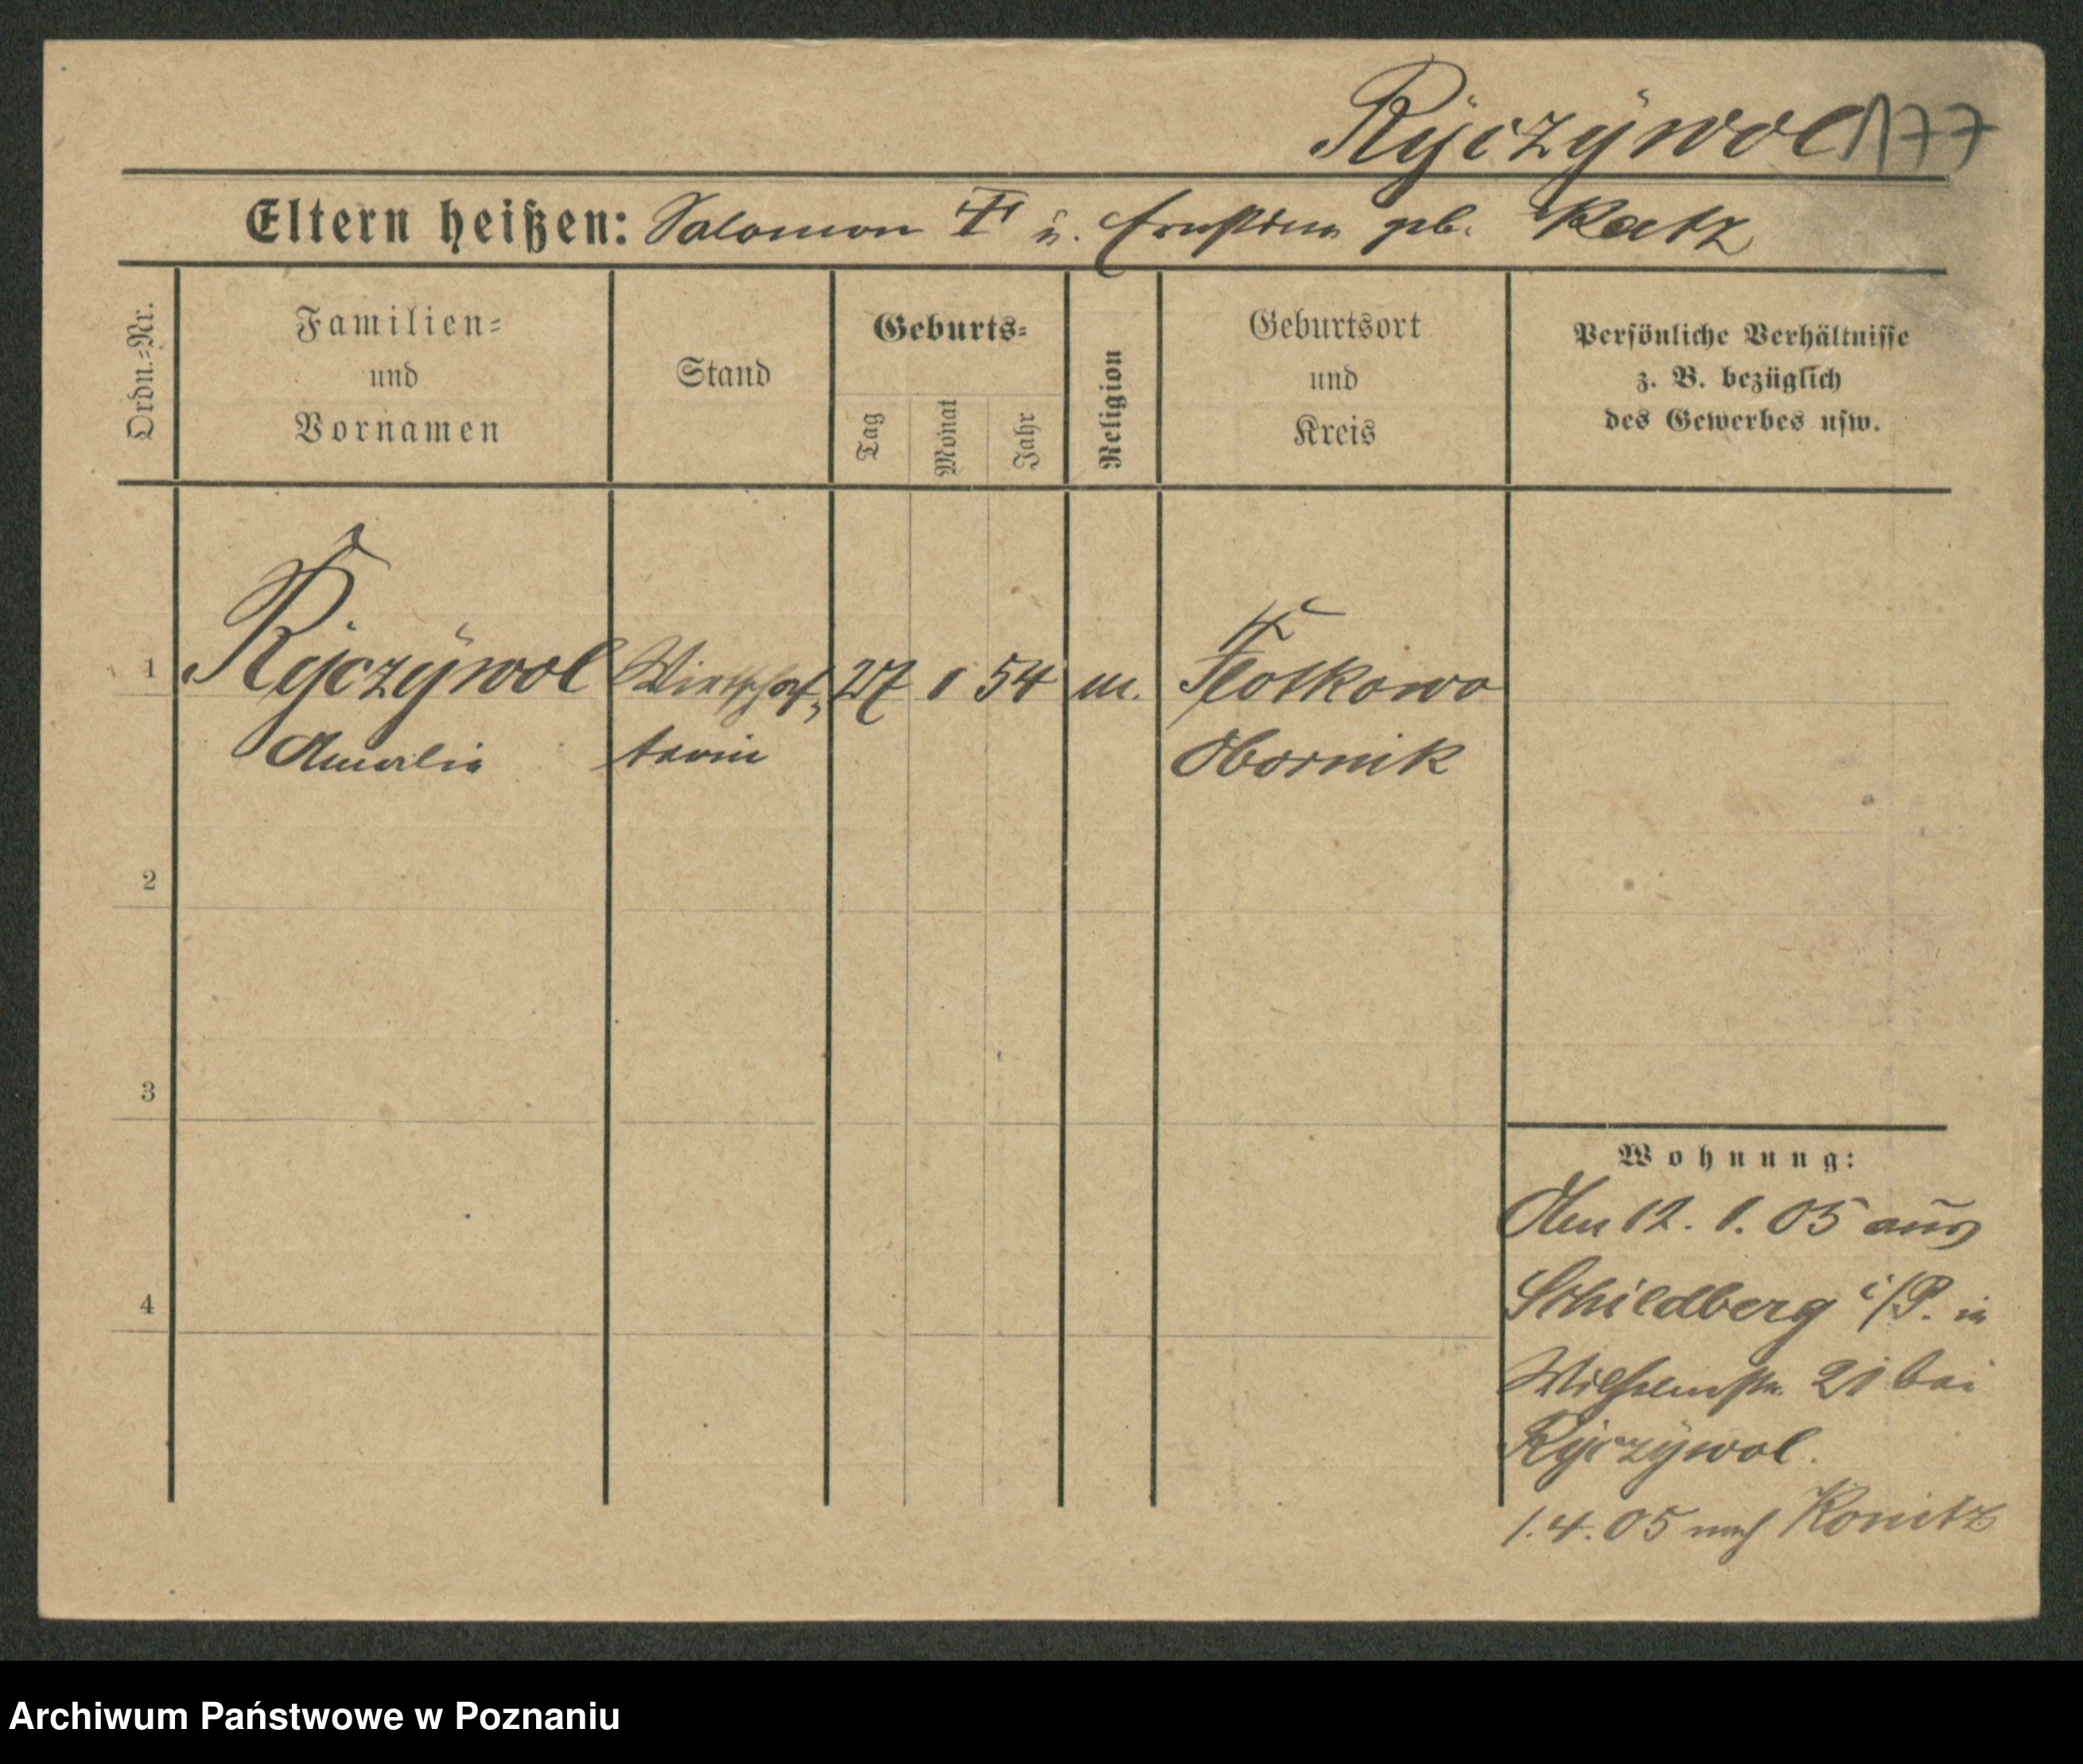 Ryczywol 177
Eltern heißen: Salomon † u. Ernstine geb. Katz
Ordn.-Nr.
Familien-
und
Vornamen
Stand
Geburts-
Tag
Monat
Jahr
Religion
Geburtsort
und
Kreis
Persönliche Verhältnisse
z. B. bezüglich
des Gewerbes usw.
1 Ryczywol Wirtschaf- 27 1 54 m. Slotkowo
Amalie terin Obornik
2
3
4
Wohnung:
Am 12. 1. 05 aus
Schildberg i/P. in
Wilhelmstr. 21 bei
Ryczywol.
1. 4. 05 nach Konitz
Archiwum Państwowe w Poznaniu